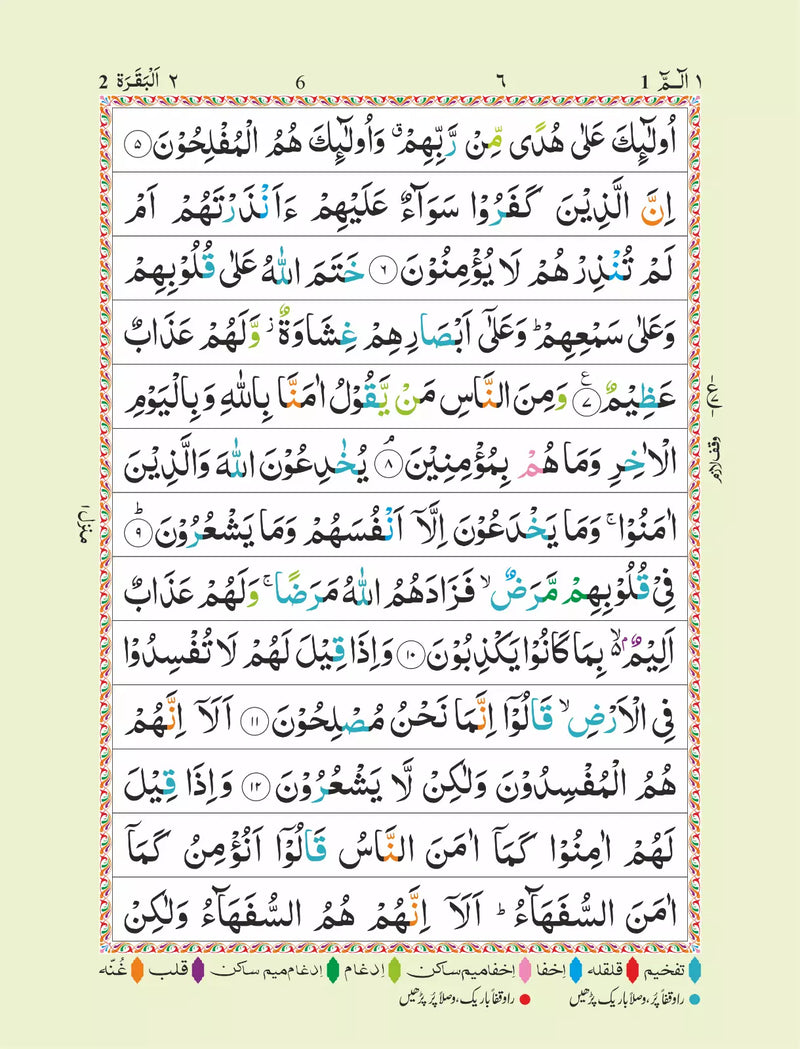 ١ الٓـمّٓ 1
٦
6
٢ اَلْبَقَرَة 2
اُولٰٓئِكَ عَلٰى هُدًى مِّنْ رَّبِّهِمْ ۗ وَاُولٰٓئِكَ هُمُ الْمُفْلِحُوْنَ ۝٥
اِنَّ الَّذِيْنَ كَفَرُوْا سَوَآءٌ عَلَيْهِمْ ءَاَنْذَرْتَهُمْ اَمْ
لَمْ تُنْذِرْهُمْ لَا يُؤْمِنُوْنَ ۝٦ خَتَمَ اللّٰهُ عَلٰى قُلُوْبِهِمْ
وَعَلٰى سَمْعِهِمْ ؕ وَعَلٰٓى اَبْصَارِهِمْ غِشَاوَةٌ ز وَّلَهُمْ عَذَابٌ
عَظِيْمٌ ۝٧ ع وَمِنَ النَّاسِ مَنْ يَّقُوْلُ اٰمَنَّا بِاللّٰهِ وَبِالْيَوْمِ
الْاٰخِرِ وَمَا هُمْ بِمُؤْمِنِيْنَ ۘ ۝٨ يُخٰدِعُوْنَ اللّٰهَ وَالَّذِيْنَ
اٰمَنُوْا ۚ وَمَا يَخْدَعُوْنَ اِلَّآ اَنْفُسَهُمْ وَمَا يَشْعُرُوْنَ ؕ ۝٩
فِيْ قُلُوْبِهِمْ مَّرَضٌ ۙ فَزَادَهُمُ اللّٰهُ مَرَضًا ۚ وَلَهُمْ عَذَابٌ
اَلِيْمٌۢ ۙ۬ بِمَا كَانُوْا يَكْذِبُوْنَ ۝١٠ وَاِذَا قِيْلَ لَهُمْ لَا تُفْسِدُوْا
فِي الْاَرْضِ ۙ قَالُوْٓا اِنَّمَا نَحْنُ مُصْلِحُوْنَ ۝١١ اَلَآ اِنَّهُمْ
هُمُ الْمُفْسِدُوْنَ وَلٰكِنْ لَّا يَشْعُرُوْنَ ۝١٢ وَاِذَا قِيْلَ
لَهُمْ اٰمِنُوْا كَمَآ اٰمَنَ النَّاسُ قَالُوْٓا اَنُؤْمِنُ كَمَآ
اٰمَنَ السُّفَهَآءُ ؕ اَلَآ اِنَّهُمْ هُمُ السُّفَهَآءُ وَلٰكِنْ
وقف لازم
منزل ١
تفخیم قلقله اِخفا اِخفامیم ساکن اِدغام اِدغام میم ساکن قلب غُنّه
را وقفاً پُر، وصلاً باریک پڑھیں را وقفاً باریک، وصلاً پُر پڑھیں